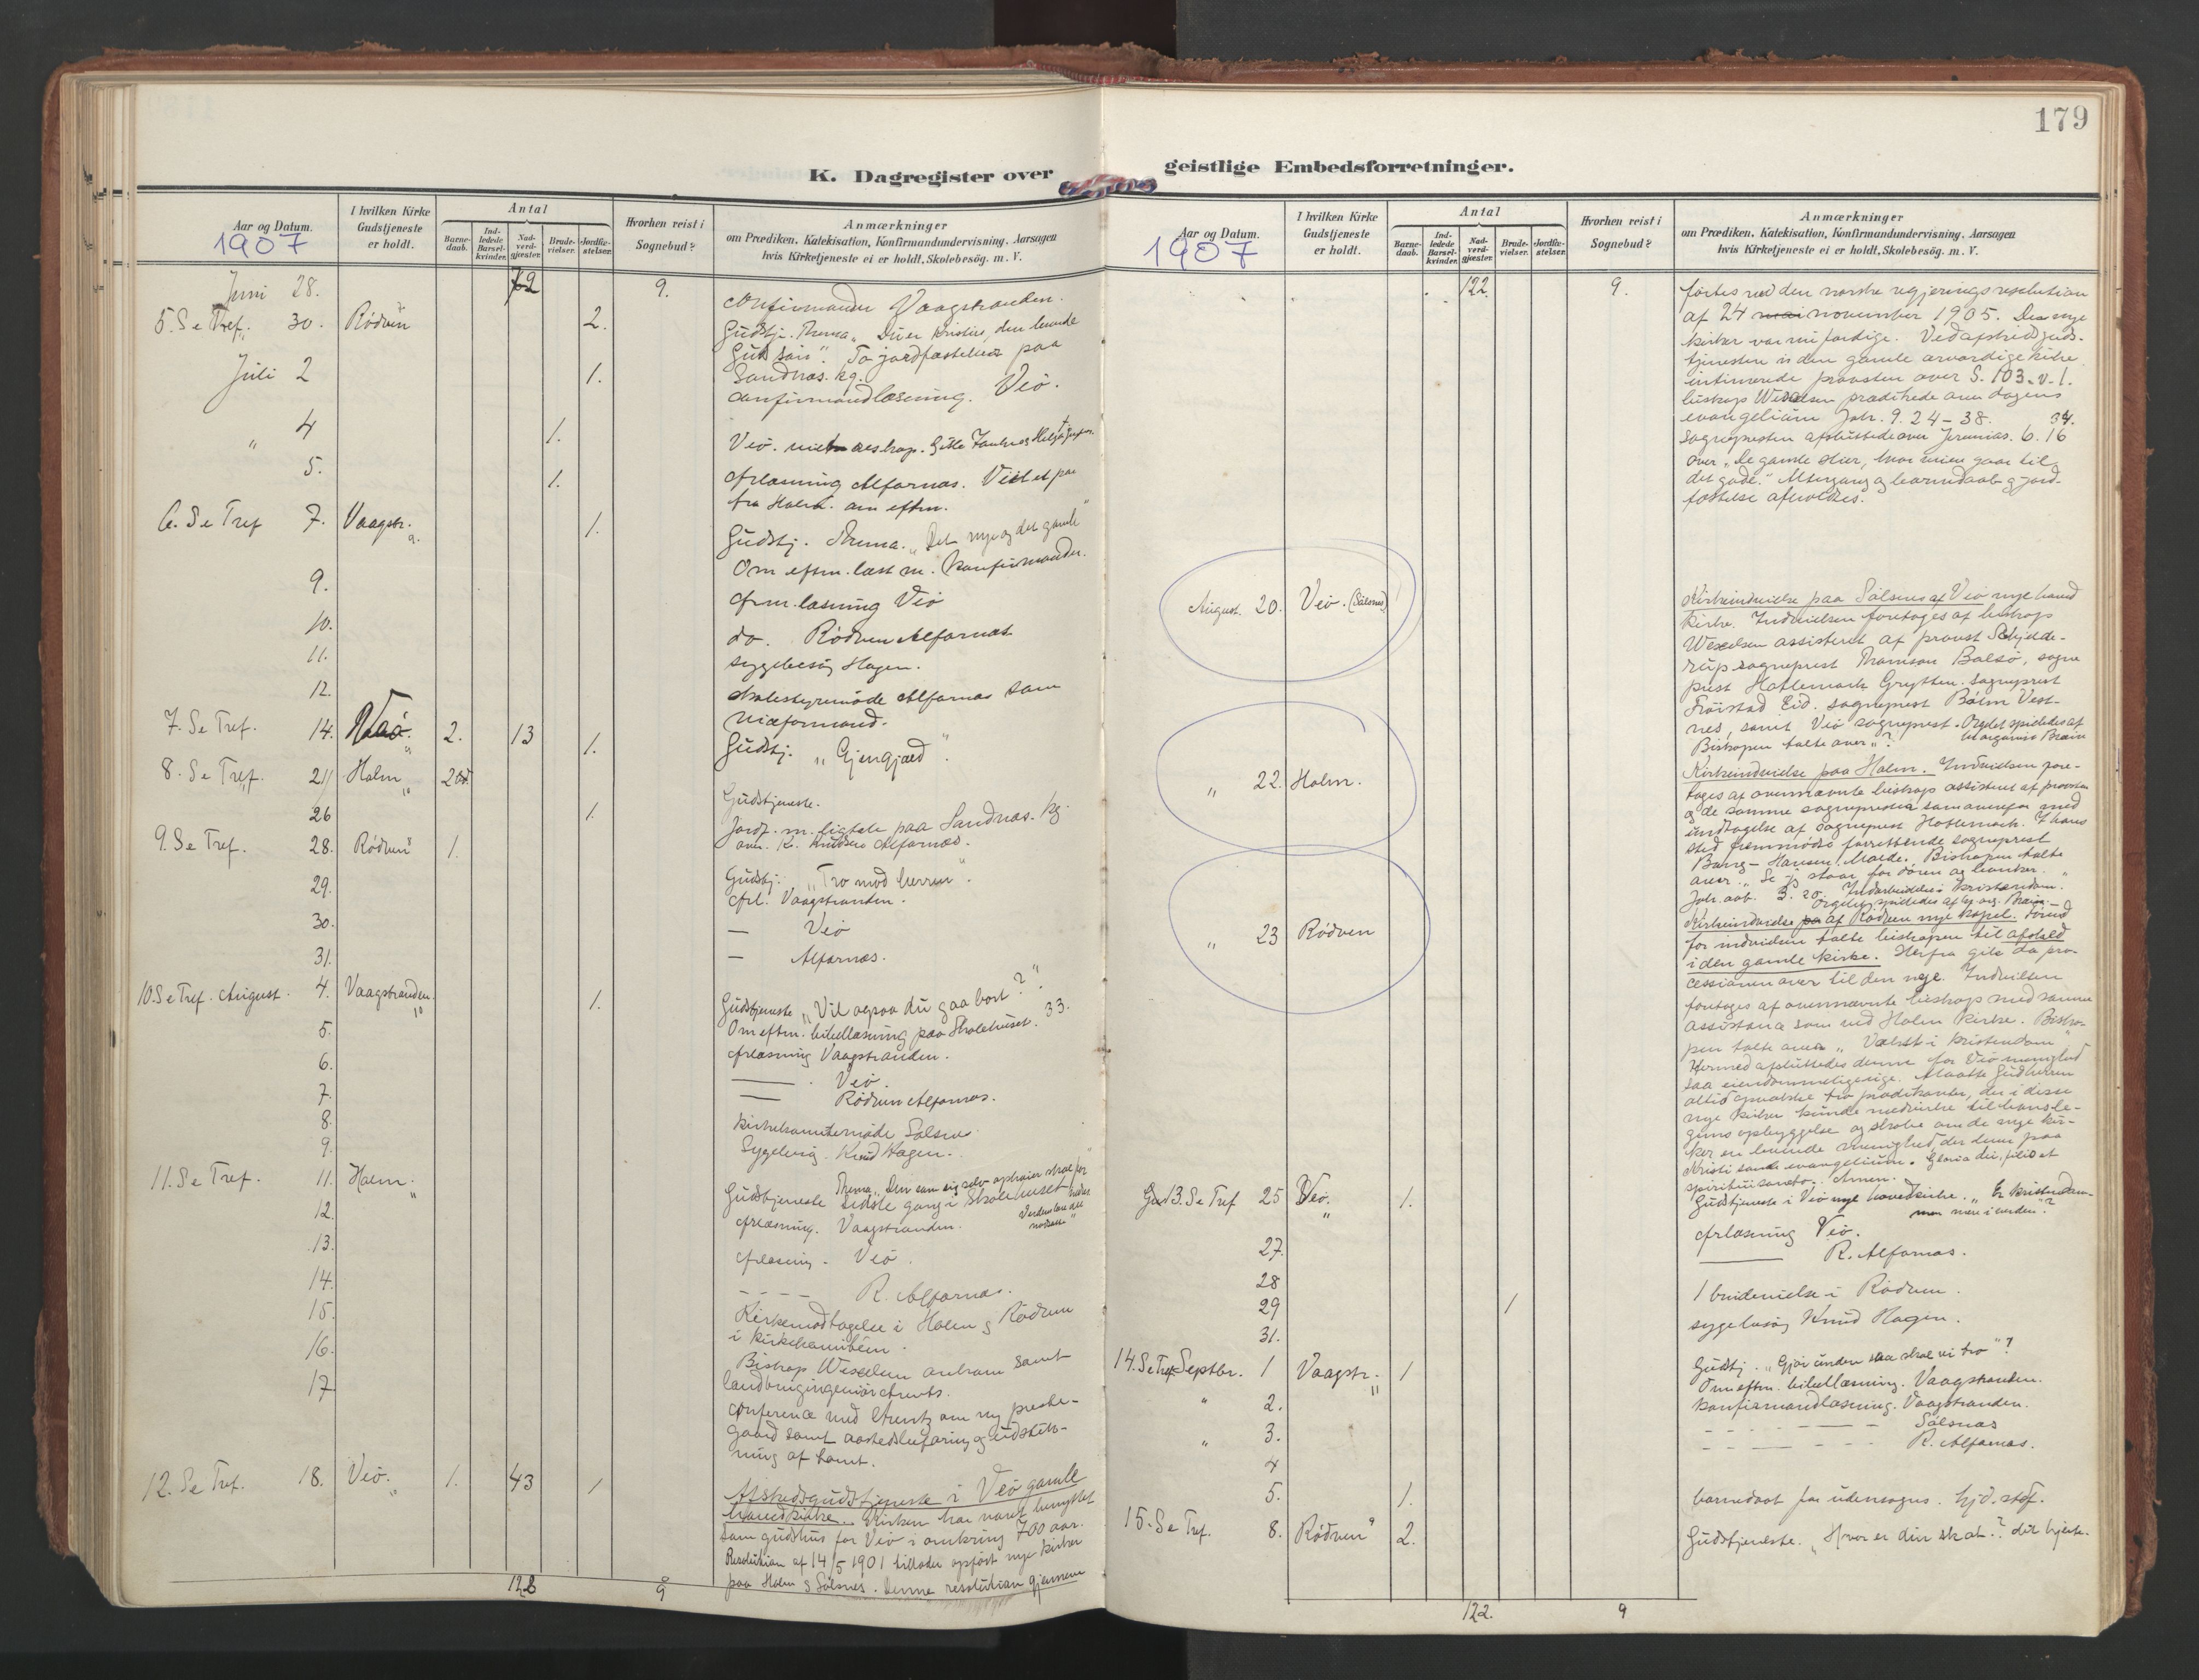 179
K. Dagregister over geistlige Embedsforretninger.
Aar og Datum.
1907
I hvilken Kirke Gudstjeneste er holdt.
Antal
Barne-daab.
Ind-ledede Barsel-kvinder.
Nad-verd-gjæster.
Brude-vielser.
Jordfæ-stelser.
Hvorhen reist i Sognebud?
Anmærkninger
om Prædiken, Katekisation, Konfirmandundervisning, Aarsagen
hvis Kirketjeneste ei er holdt, Skolebesög. m. V.
Juni 28. 72 9. Confirmander Vaagstranden.
5. S e Tref. 30. Rödven 2. Gudstj. Thema „Du er Kristus, den levende
Guds søn". To jordfæstelser paa
Juli 2 1. Sandnæs. kg.
Confirmandlæsning. Veö.
„ 4 1. Veö.
5. 1. Cfrlæsning Alfarnæs. Viet et par
fra Holm. om eftm.
6. S e Tref 7. Vaagstr. 1. Gudstj. Thema. „Det nye og det gamle"
Om eftm. læst m. konfirmander.
9. Cfrm. læsning Veö
10. do. Rödven Alfarnæs
11. sygebesög Hagen.
12. skolestyremöde Alfarnæs som
viceformand.
7. S e Tref. 14. Veö. 2. 13 1. Gudstj. „Gjengjæld".
8. S e Tref. 21 Holm 2 Gudstjeneste.
26 1. Jordf. m. ligtale paa Sandnæs. kg.
over K. Knudsen Alfarnæs.
9. S e Tref. 28. Rödven 1. Gudstj: „Tro mod herren".
29. Cfrl. Vaagstranden.
30. — Veö
31. — Alfarnæs.
10. S e Tref. August. 4. Vaagstranden. 1. Gudstjeneste „Vil ogsaa du gaa bort?"
5. Om eftm. bibellæsning paa Skolehuset. 33.
6. Cfrlæsning Vaagstranden.
— Veö.
7. — Rödven Alfarnæs.
8. Kirkekomitemöde Sölsnes
9. Sygebesög. Knud Hagen.
11. S e Tref. 11. Holm. Gudstjeneste Thema „Den som sig selv ophöier skal for
sidste gang i Skolehuset
12. Cfrlæsning. Vaagstranden.
13. Cfrlæsning – Veö.
14. – – – – R. Alfarnæs.
15. Kirkemodtagelse i Holm og Rödven
i kirkekomiteen.
16. Biskop Wexelsen ankom samt
landbrugingeniör Arentz.
17 Conference med Arentz om ny preste-
gaard samt aastedsbefaring og udstik-
ning af tomt.
12. S e Tref. 18. Veö. 1. 43 1 Afskedsgudstjeneste i Veö gamle
hovedkirke. Kirken har været benyttet
som gudshus for Veö i omkring 700 aar.
Resolution af 14/5 1901 tillader opfört nye kirker
paa Holm og Sölsnes. Denne resolution gjennem
128 9
Aar og Datum.
1907
I hvilken Kirke Gudstjeneste er holdt.
Antal
Barne-daab.
Ind-ledede Barsel-kvinder.
Nad-verd-gjæster.
Brude-vielser.
Jordfæ-stelser.
Hvorhen reist i Sognebud?
Anmærkninger
om Prædiken, Katekisation, Konfirmandundervisning, Aarsagen
hvis Kirketjeneste ei er holdt, Skolebesög. m. V.
122 9. förtes ved den norske regjerings resolution
af 24 mai november 1905. De nye
kirker var nu færdige. Ved afskedsguds-
tjenesten i den gamle ærværdige kirke
intimerede provsten over S. 103. v. 1.
biskop Wexelsen prædikede over dagens
evangelium Joh. 9. 24 – 38.
Sognepresten afsluttede over Jeremias. 6. 16
over „De gamle stier, hvor veien gaar til
det gode." Altergang og barnedaab og jord-
fæstelse afholdtes.
August. 20. Veö. (Sölsnes) Kirkeindvielse paa Sölsnes af Veö nye hoved
kirke. Indvielsen foretoges af biskop
Wexelsen assisteret af provst Schjelde-
rup sogneprest Thomson Bolsö, sogne
prest Hotlemark Grytten. sogneprest
Fröistad Eid. sogneprest Böhn Vest-
nes, samt Veö sogneprest. Orgelet spilledes af
Biskopen talte over „? organist Brain
„ 22. Holm. Kirkeindvielse paa Holm. Indvielsen fore-
toges af ovennævnte biskop assisteret af provsten
og de samme sogneprester som ovenfor med
undtagelse af sogneprest Hotlemark. I hans
sted fremmödte forrettende sogneprest
Bang-Hansen, Molde. Biskopen talte
over. „Se jeg staar for dören og banker."
Joh. aab. 3. 20. Indarbeidelse i kristendom.
Orgelet spilledes af Brain –
„ 23 Rödven Kirkeindvielse pa af Rödven nye kapel. Forud
for indvielsen talte biskopen til afsked
i den gamle kirke. Herfra gik da pro-
cessionen over til den nye. Indvielsen
foretoges af ovennævnte biskop med samme
assistance som ved Holm kirke. Bisko-
pen talte over „Vækst i kristendom"
Hermed afsluttedes denne for Veö menighed
saa eiendommelige uge. Maatte Gud herren
altid opvække tro prædikanter, der i disse
nye kirker kunde medvirke til hans le-
gems opbyggelse og skabe om de nye kir-
ker en levende menighed, der dem paa
Kristi sande evangelium. Gloria dei, filio et
spiritui sancto. Amen.
Gud 13. S e Tref 25 Veö. 1. Gudstjeneste i Veö nye hovedkirke. „Er kristendom-
men mere i verden"?
27. Cfrlæsning Veö.
28 — R. Alfarnæs.
29 1 1 brudevielse i Rödven.
31. sygebesög Knud Hagen.
14. S e Tref Septbr. 1 Vaagstr. 1 Gudstj. „Gjör under saa skal vi tro"?
Om eftm. bibellæsning. Vaagstranden.
„ 2. Konfirmandlæsning. Vaagstranden.
„ 3. – – – – Sölsnæs
4 – – – – R. Alfarnæs.
5. 1. barnedaab for udensogns. hjd. stöf.
15. S e Tref. 8. Rödven 2. Gudstjeneste. „Hvor er din skat? dit hjerte.
122. 9